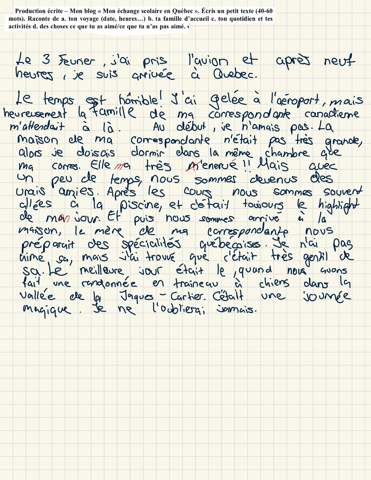 Production écrite – Mon blog « Mon échange scolaire en Québec ». Écris un petit texte (40-60
mots). Raconte de a. ton voyage (date, heures…) b. ta famille d'accueil c. ton quotidien et tes
activités d. des choses ce que tu as aimé/ce que tu n'as pas aimé. «
Le 3 Fevrer, j'ai pris l'avion et après neuf
heures, je suis arrivée à Quebec.
Le temps est horrible! J'ai gelée à l'aéroport, mais
heureusement la famille de ma correspondante canadienne
m'attendait à là. Au début, je n'amais pas. La
maison de ma correspondante n'était pas très grande,
alors je doisais dormir dans la même chambre que
ma corres. Elle ma très m'énervé!! Mais avec
un peu de temps, nous sommes devenus des
vrais amies. Après les cours nous sommes souvent
allées à la piscine, et c'était toujours le highlight
de mon jour. Et puis nous sommes arrivé à la
maison, le mère de ma correspondante nous
préparait des spécialités québeçoises. Je n'ai pas
aimé sa, mais j'ai trouvé que c'était très gentil de
sa. Le meilleure jour était le, quand nous avons
fait une randonnée en traineau à chiens dans la
vallée de la Jaques-Cartier. C'était une journée
magique. Je ne l'oublierai jamais.